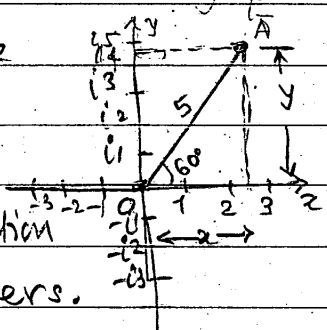 y
Ā
i5
i4
i3
i2
i1
5
y
60°
-3 -2 -1 0 1 2 3 x
-i1
x
-i2
-i3
tion
ers.